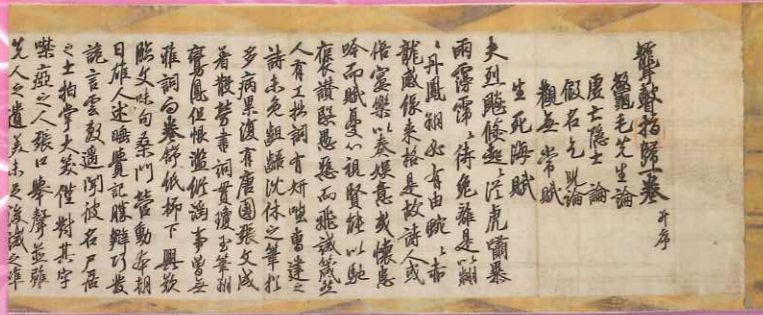 聾瞽指歸一卷 并序
鼈毛先生論
虛亡隱士論
假名乞兒論
觀無常賦
生死海賦
夫烈飈倐起從虎嘯暴
雨霶霈待兔離是以翩
〻丹鳳翔必有由蜿〻赤
龍感緣來格是故詩人或
宴樂以奏娛意或懷患
吟而賦憂心視賢能以馳
褒讚覽愚惡而飛誡箴然
人有工拙詞有妍嗤曹建之
詩未免齟齬沈休之筆猶
多病累復有唐國張文成
著散勞書詞貫瓊玉筆翔
鸞鳳但恨濫縱淫事曾無
雅詞面卷舒紙柳下興歎
臨文味句桑門營動本朝
日雄人述睡覺記勝辯巧發
詭言雲敷遙聞彼名尸居
之士拍掌大笑僅對其字
噤瘂之人張口舉聲並雖
先人之遺美未足後誡之準